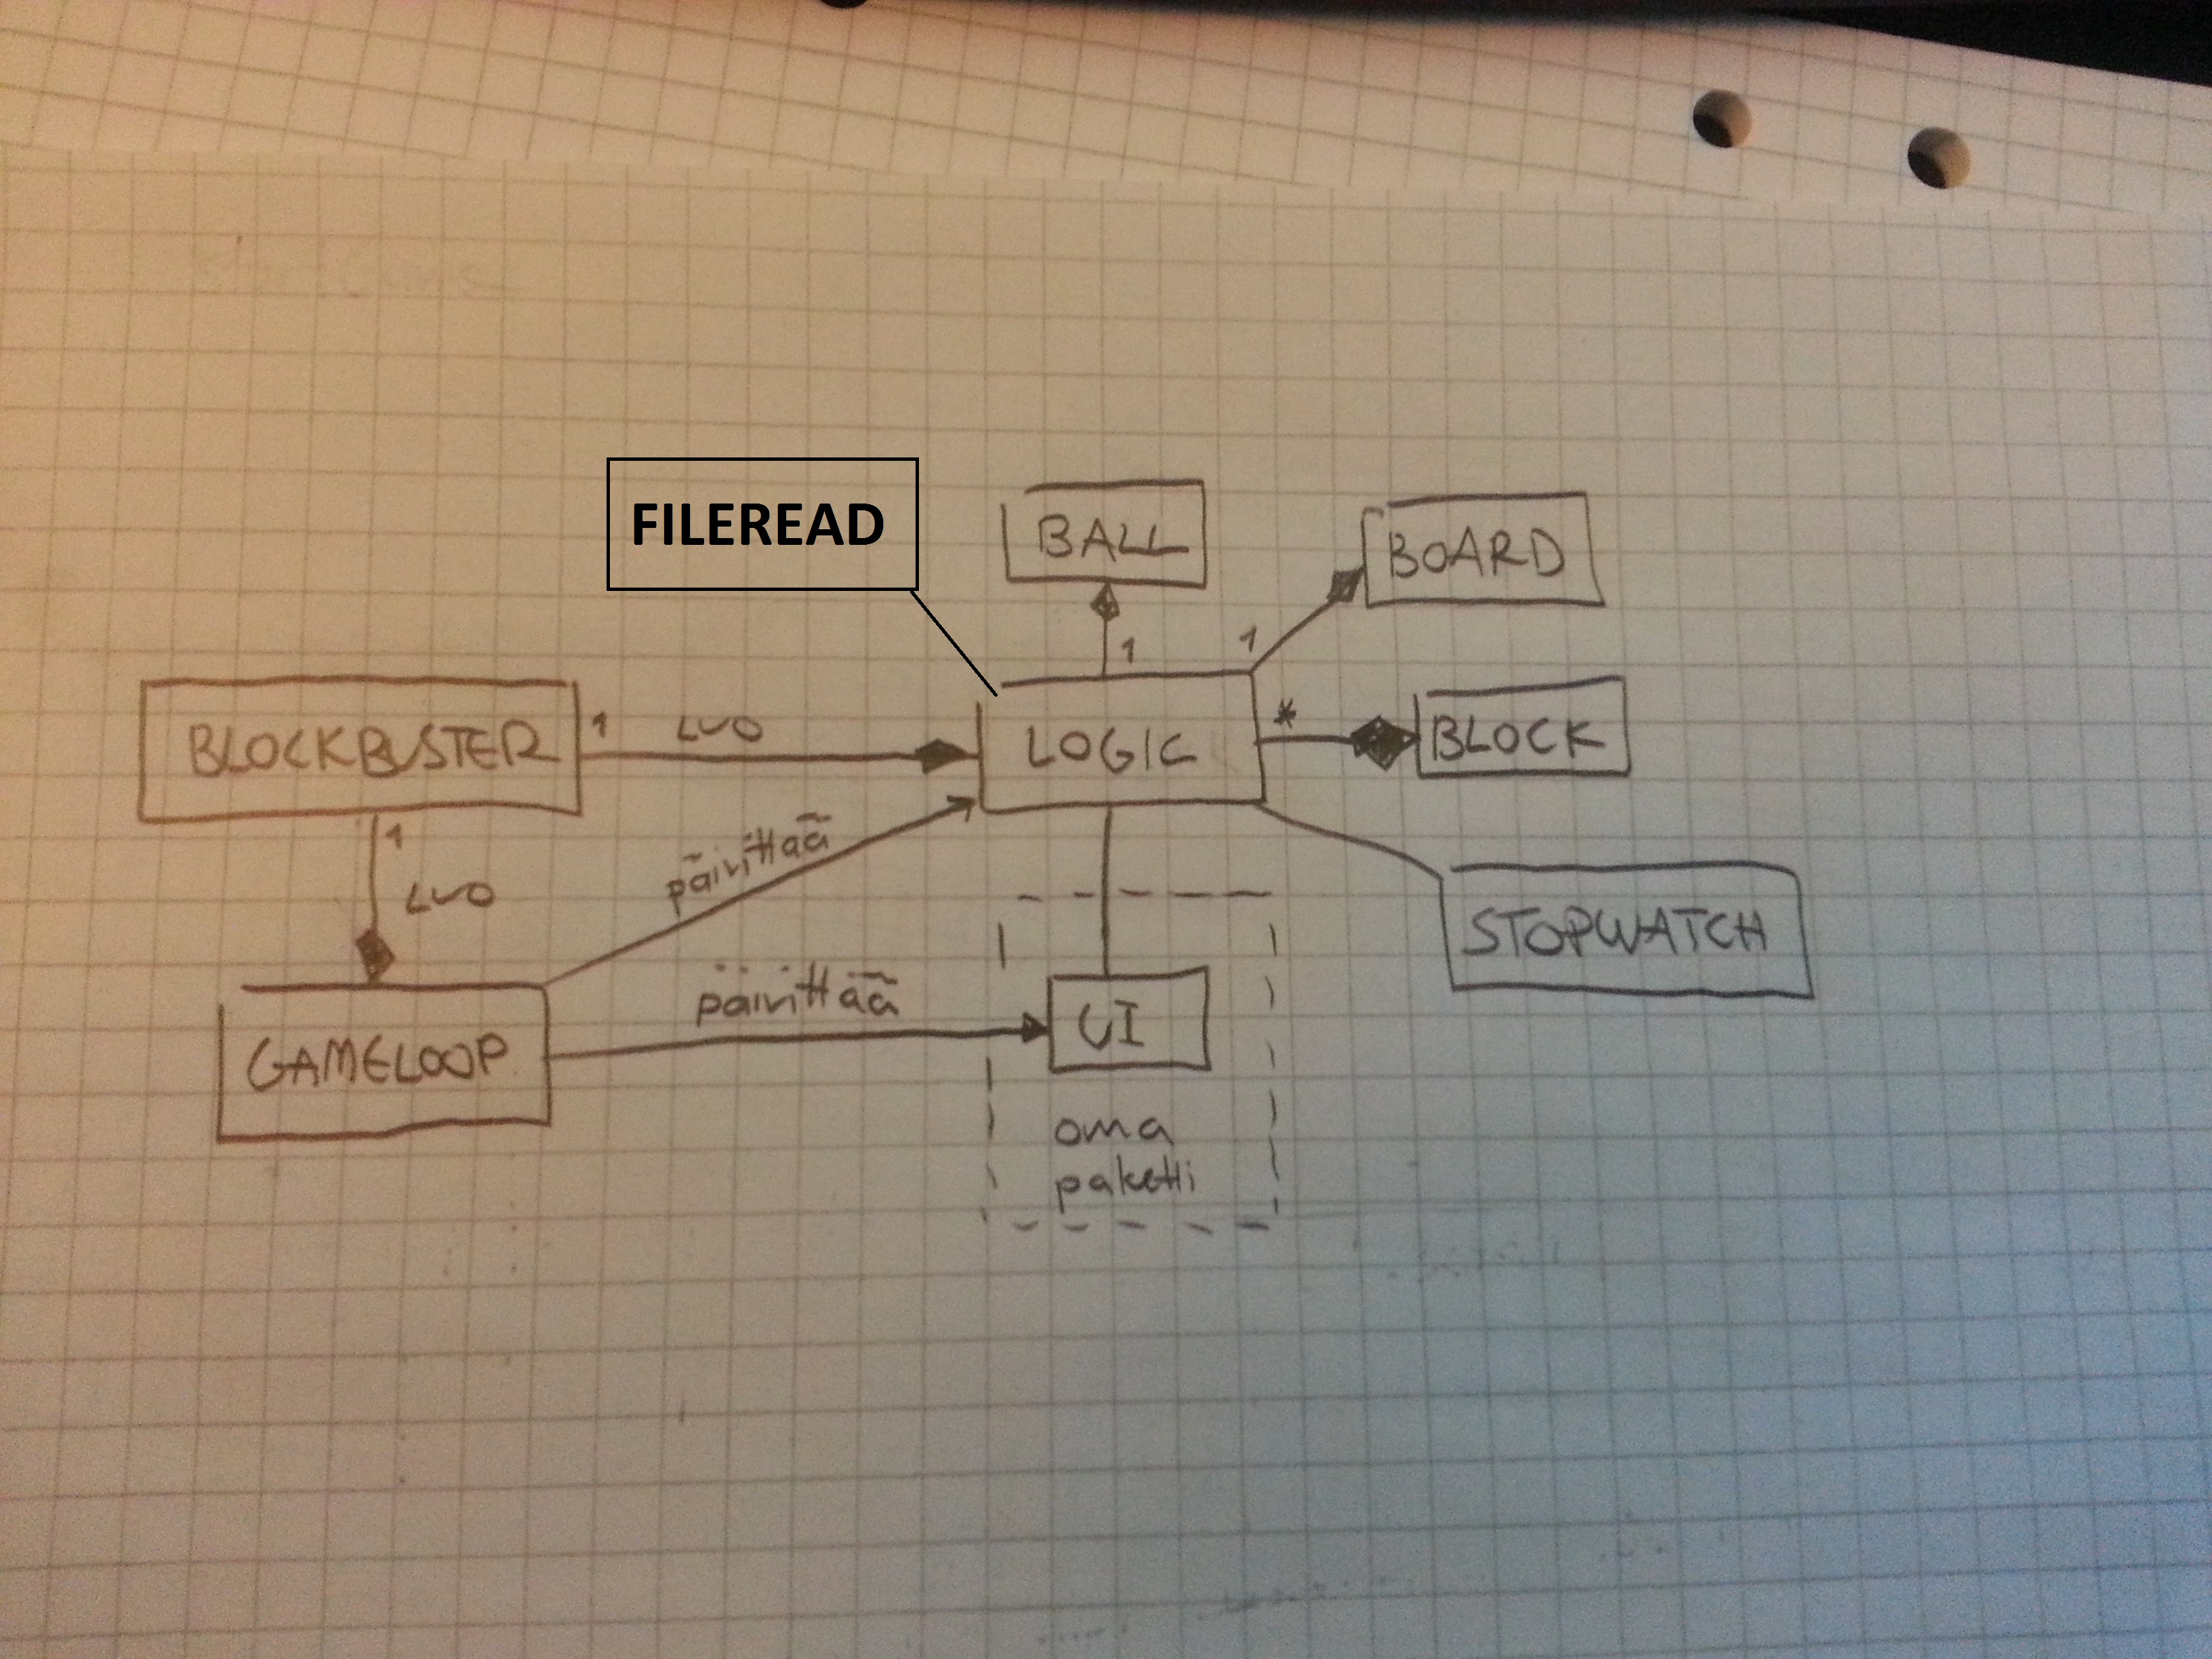 FILEREAD
BALL
BOARD
1
1
BLOCKBUSTER
1
LUO
LOGIC
*
BLOCK
1
LUO
päivittää
STOPWATCH
päivittää
GAMELOOP
UI
oma
paketti